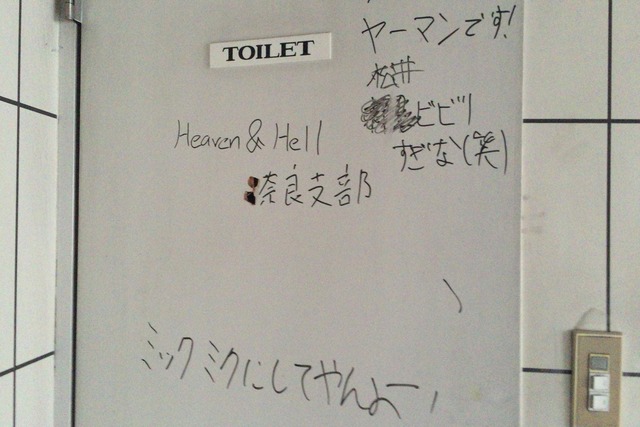 ヤーマンです!
TOILET
松井
ビビリ
Heaven & Hell
すぎな(笑)
奈良支部
ミックミクにしてやんよー!